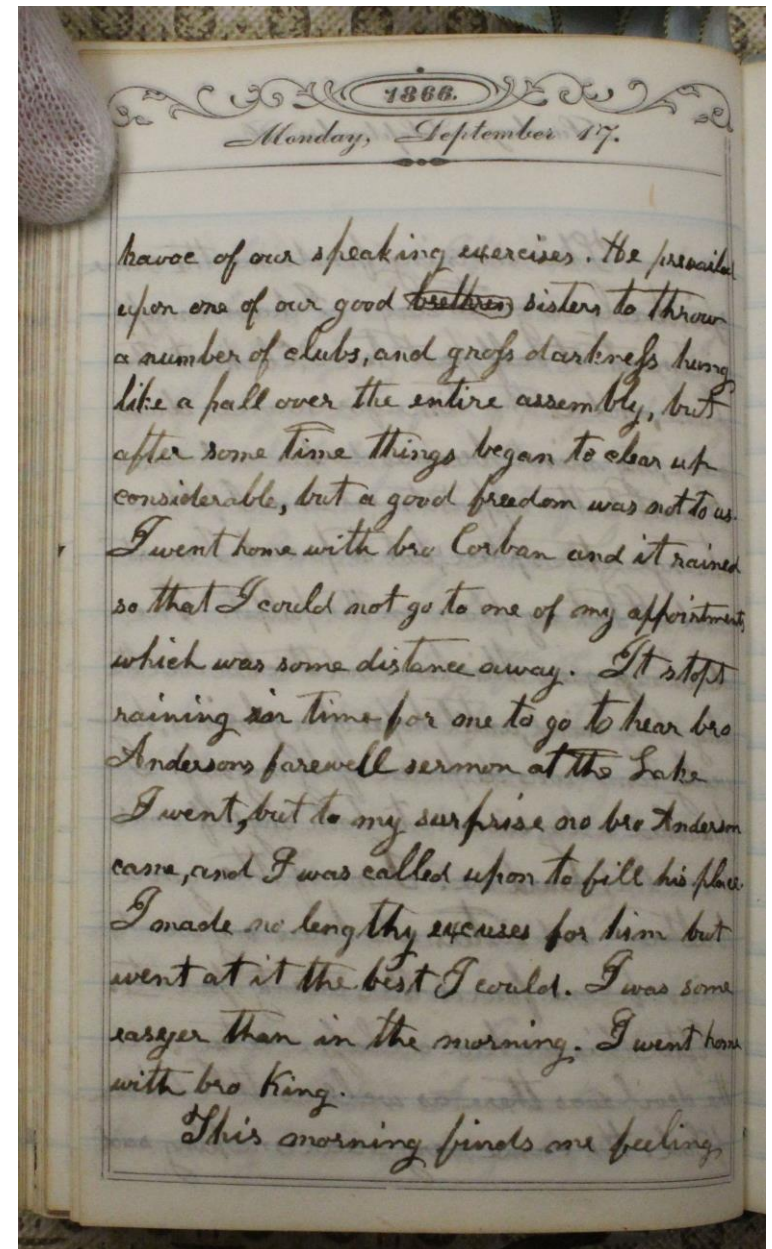 1866.
Monday, September 17.
havoc of our speaking exercises. He prevailed
upon one of our good brethren sisters to throw
a number of clubs, and gross darkness hung
like a pall over the entire assembly, but
after some time things began to clear up
considerable, but a good freedom was not to us.
I went home with bro Corban and it rained
so that I could not go to one of my appointments
which was some distance away. It stops
raining in time for me to go to hear bro
Andersons farewell sermon at the Lake
I went, but to my surprise no bro Anderson
came, and I was called upon to fill his place.
I made no lengthy excuses for him but
went at it the best I could. I was some
easyer than in the morning. I went home
with bro King.
This morning finds me feeling